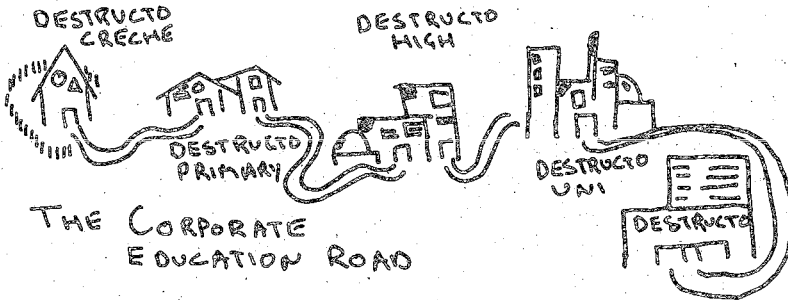 DESTRUCTO
CRECHE
DESTRUCTO
HIGH
DESTRUCTO
PRIMARY
DESTRUCTO
UNI
DESTRUCTO
THE CORPORATE
EDUCATION ROAD